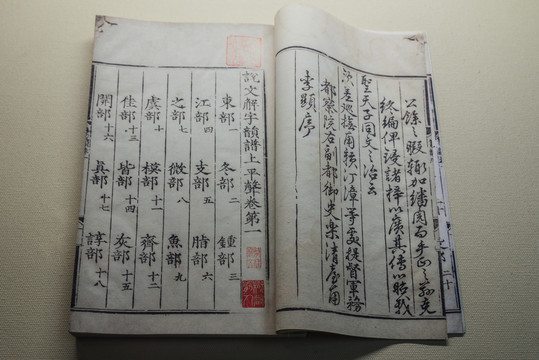 公餘之暇輒加繙閱而手正之茲克
終編俾浸諸梓以廣其傳以昭我
聖天子同文之治云
欽差巡撫南贛汀漳等處提督軍務
都察院右副都御史樂清臺南
李顯序
說文解字韻譜上平聲卷第一
東部一 冬部二 鍾部三
江部四 支部五 脂部六
之部七 微部八 魚部九
虞部十 模部十一 齊部十二
佳部十三 皆部十四 灰部十五
開部十六 眞部十七 諄部十八